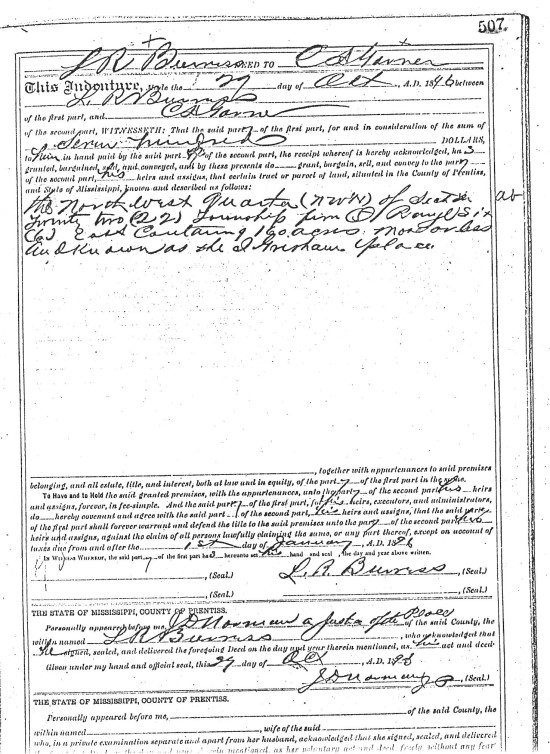 507.
L R Burress DEED TO C S Garner
This Indenture, made the 29 day of Oct, A.D. 1896 between
L. R. Burress
of the first part, and C S Garner
of the second part, WITNESSETH: That the said party of the first part, for and in consideration of the sum of
Seven hundred DOLLARS,
to him in hand paid by the said part of the second part, the receipt whereof is hereby acknowledged, ha s
granted, bargained, sold, and conveyed, and by these presents do grant, bargain, sell, and convey to the party
of the second part, his heirs and assigns, that certain tract or parcel of land, situated in the County of Prentiss,
and State of Mississippi, known and described as follows:
The North West Quarter (NW¼) of Section
Twenty two (22) Township five (5) Range Six
(6) East Containing 160 acres more or less
and known as the Grisham place
, together with appurtenances to said premises
belonging, and all estate, title, and interest, both at law and in equity, of the party of the first part in the same.
To Have and to Hold the said granted premises, with the appurtenances, unto the party of the second part his heirs
and assigns, forever, in fee-simple. And the said party of the first part, for his heirs, executors, and administrators,
do hereby covenant and agree with the said part of the second part, his heirs and assigns, that the said party
of the first part shall forever warrant and defend the title to the said premises unto the party of the second part his
heirs and assigns, against the claim of all persons lawfully claiming the same, or any part thereof, except on account of
taxes due from and after the 1st day of January, A.D. 1896
In Witness Whereof, the said party of the first part has hereunto set his hand and seal, the day and year above written.
, (Seal.) L. R. Burress, (Seal.)
, (Seal.) , (Seal.)
THE STATE OF MISSISSIPPI, COUNTY OF PRENTISS.
Personally appeared before me, J D Norman a Justice of the Peace of the said County, the
within named L R Burress, who acknowledged that
he signed, sealed, and delivered the foregoing Deed on the day and year therein mentioned, as his act and deed.
Given under my hand and official seal, this 29 day of Oct, A.D. 1896
J D Norman, (Seal.)
THE STATE OF MISSISSIPPI, COUNTY OF PRENTISS.
Personally appeared before me, of the said County, the
within named, wife of the said
who, in a private examination separate and apart from her husband, acknowledged that she signed, sealed, and delivered
mentioned, as her voluntary act and deed, freely, without any fear